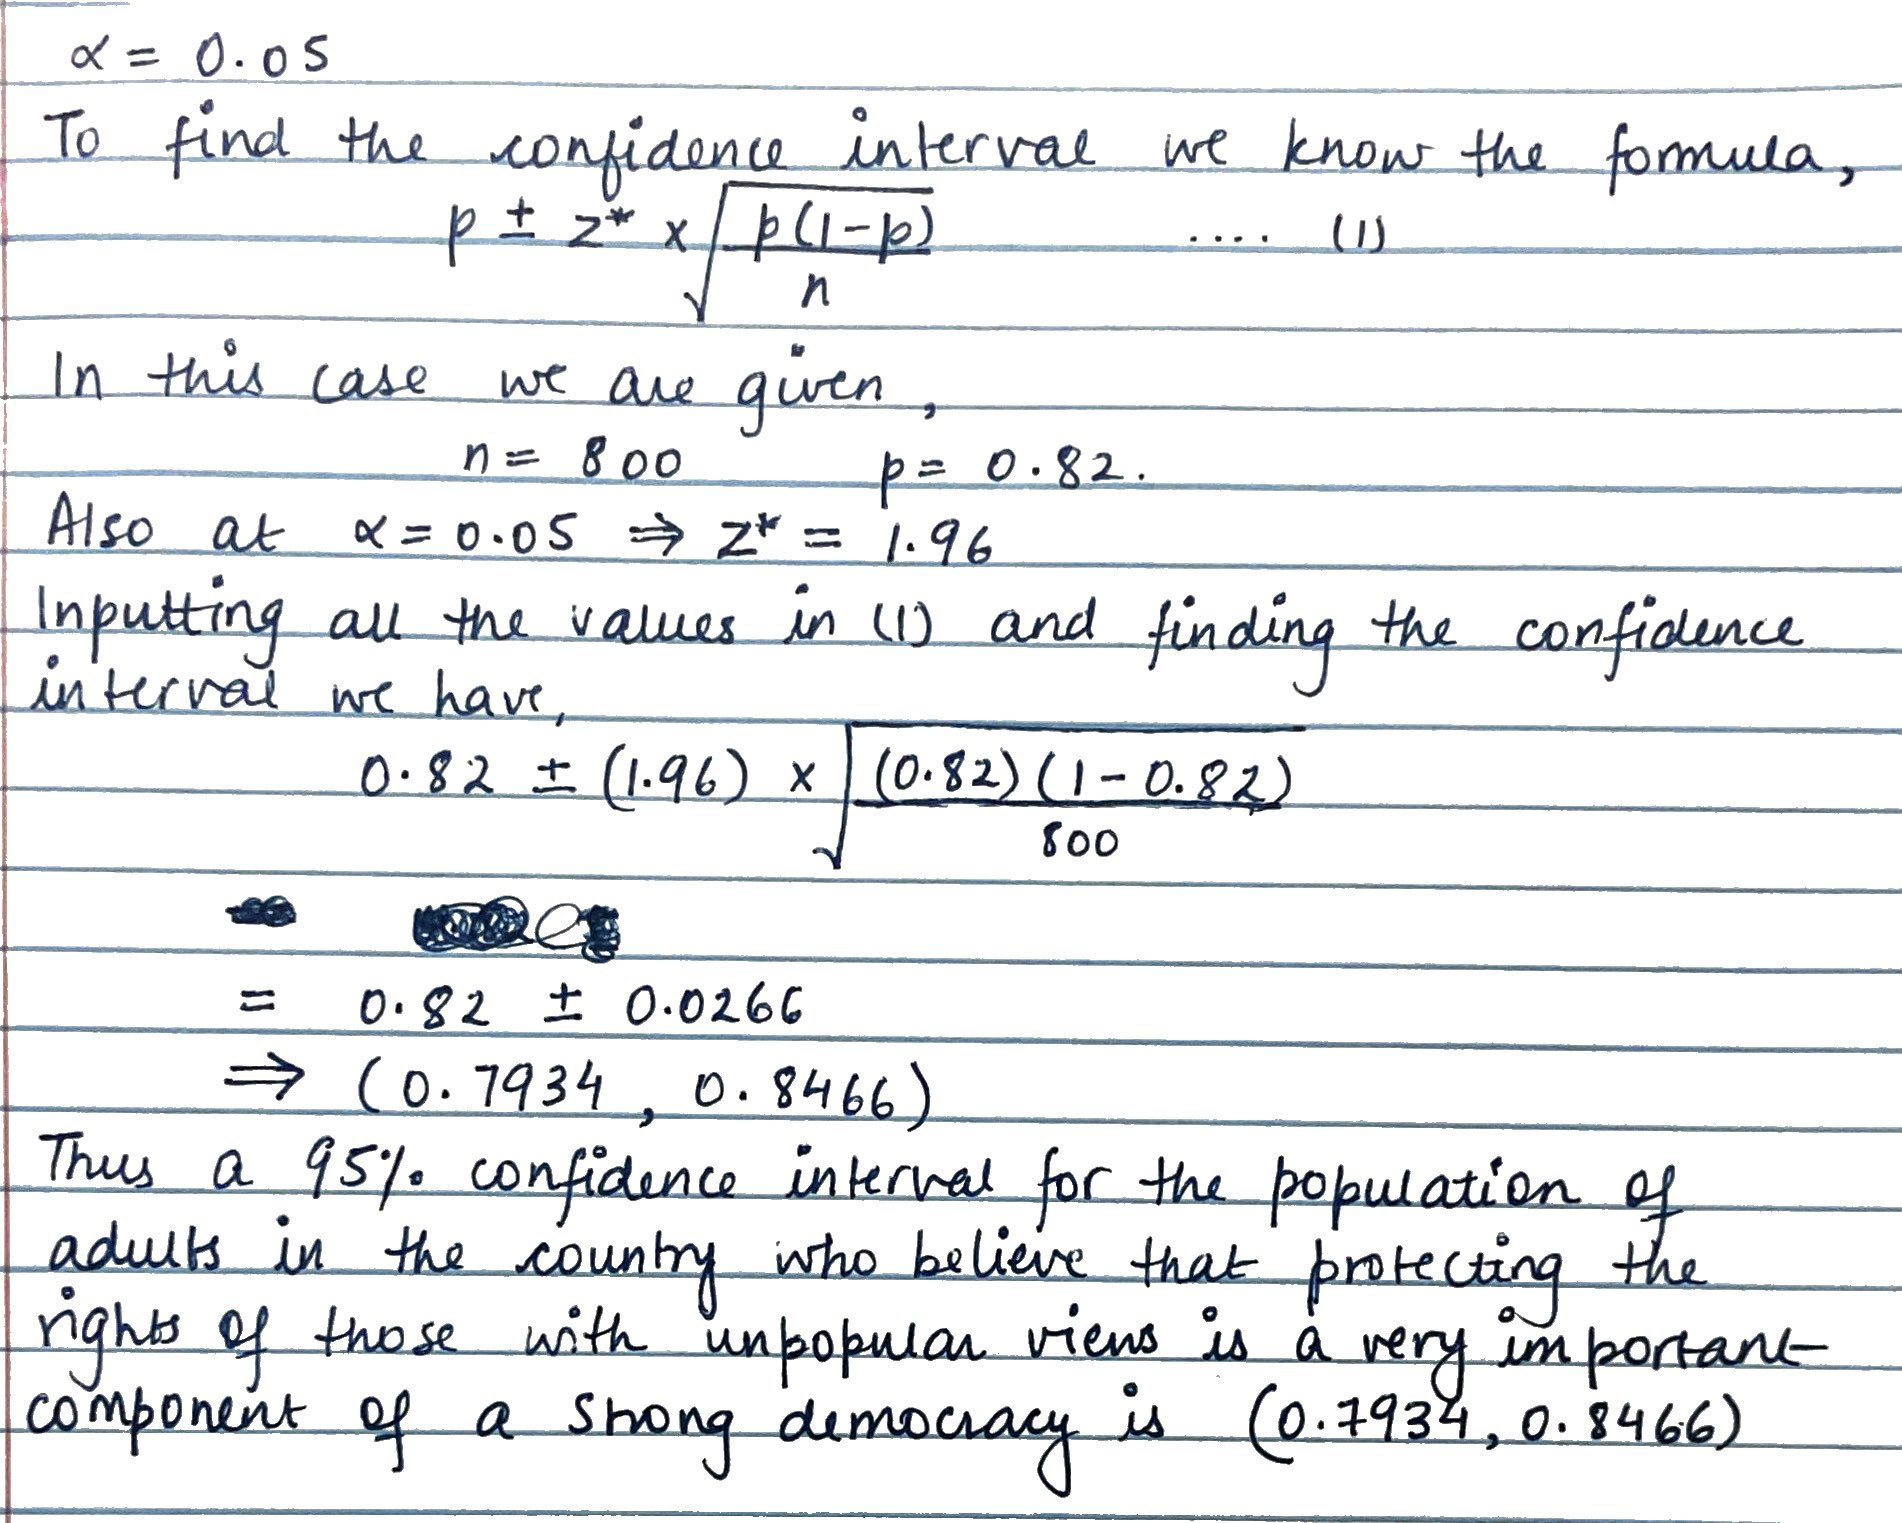 α = 0.05
To find the confidence interval we know the formula,
p ± z* × √(p(1-p)/n) .... (1)
In this case we are given,
n = 800 p = 0.82.
Also at α = 0.05 ⇒ z* = 1.96
Inputting all the values in (1) and finding the confidence
interval we have,
0.82 ± (1.96) × √((0.82)(1-0.82)/800)
= 0.82 ± 0.0266
⇒ (0.7934, 0.8466)
Thus a 95% confidence interval for the population of
adults in the country who believe that protecting the
rights of those with unpopular views is a very important
component of a strong democracy is (0.7934, 0.8466)